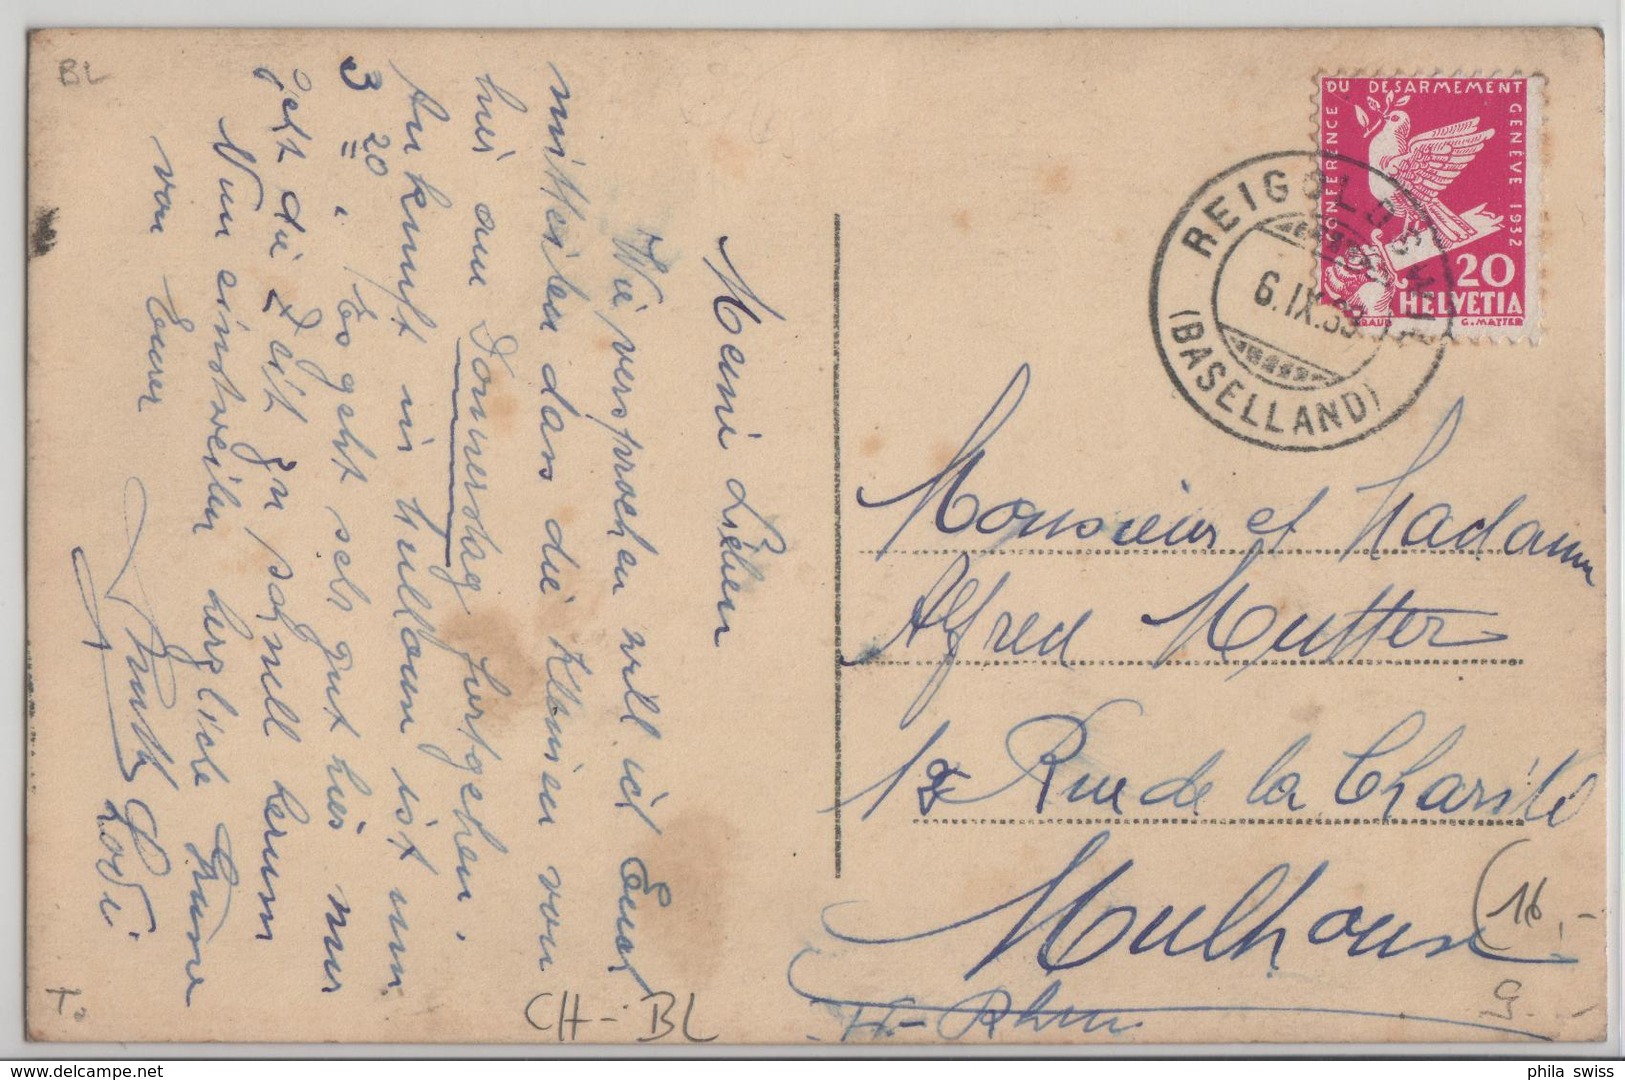 BL
Meine Lieben
Wie versprochen will ich Euch
mitteilen dass die kleinen von
hier am Donnerstag fortgehen.
Ankunft in Mulhouse ist um
3 20. Es geht sehr gut hier nur
geht die Zeit zu schnell herum
Nun einstweilen herzliche Grüsse
von Eurer
Lodi
T.
CH - BL
CONFERENCE DU DESARMEMENT GENÈVE 1932
20
HELVETIA
G. MATTER
REIGOLDSWIL
6.IX.
(BASELLAND)
Monsieur et Madame
Alfred Mutter
Rue de la Charité
Mulhouse
Ht-Rhin
16.-
phila swiss